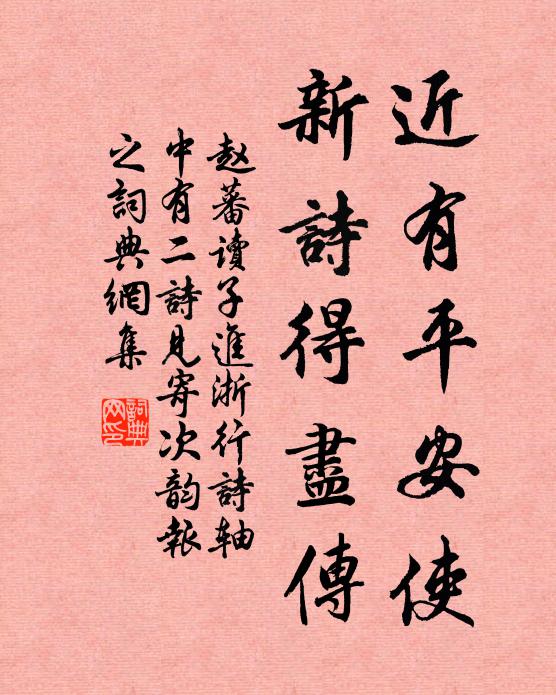 近有平安使
新詩得盡傳
赵蕃讀子進浙行詩轴
中有二詩見寄次韵報
之詞典網集
詞典网印